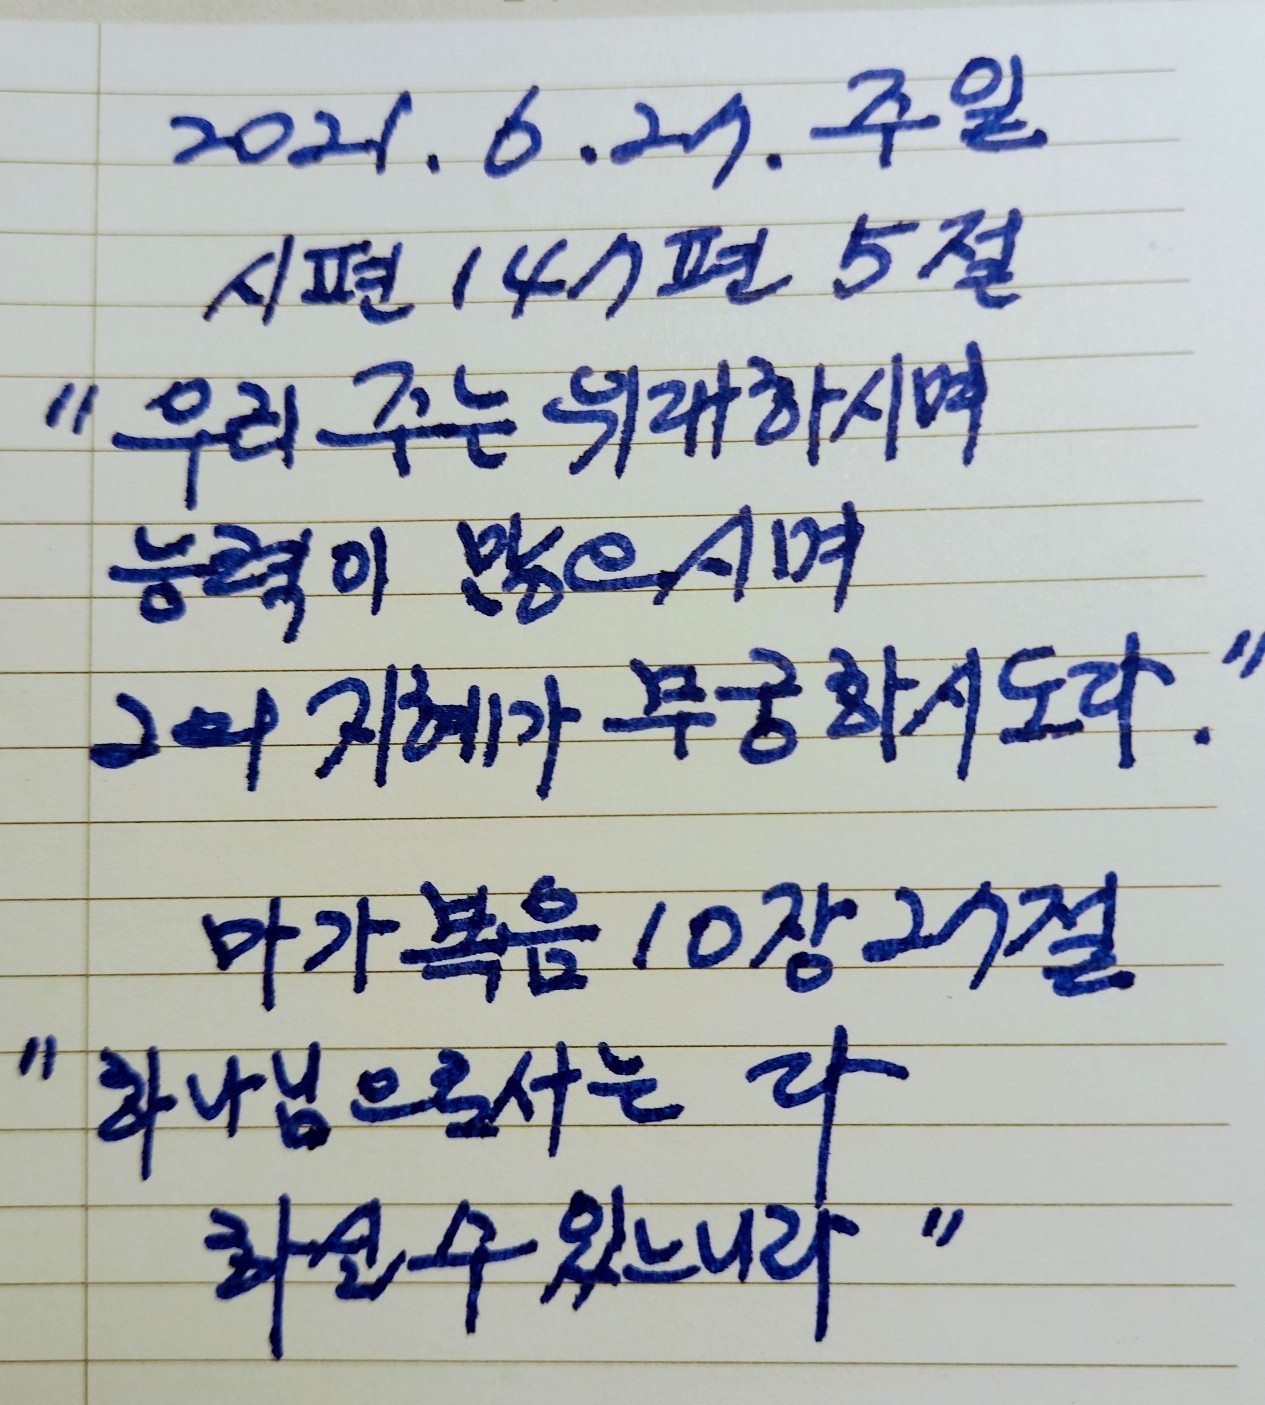 2021. 6. 27. 주일
시편 147편 5절
"우리 주는 위대하시며
능력이 많으시며
그의 지혜가 무궁하시도다."
마가복음 10장 27절
"하나님으로서는 다
하실 수 있느니라"